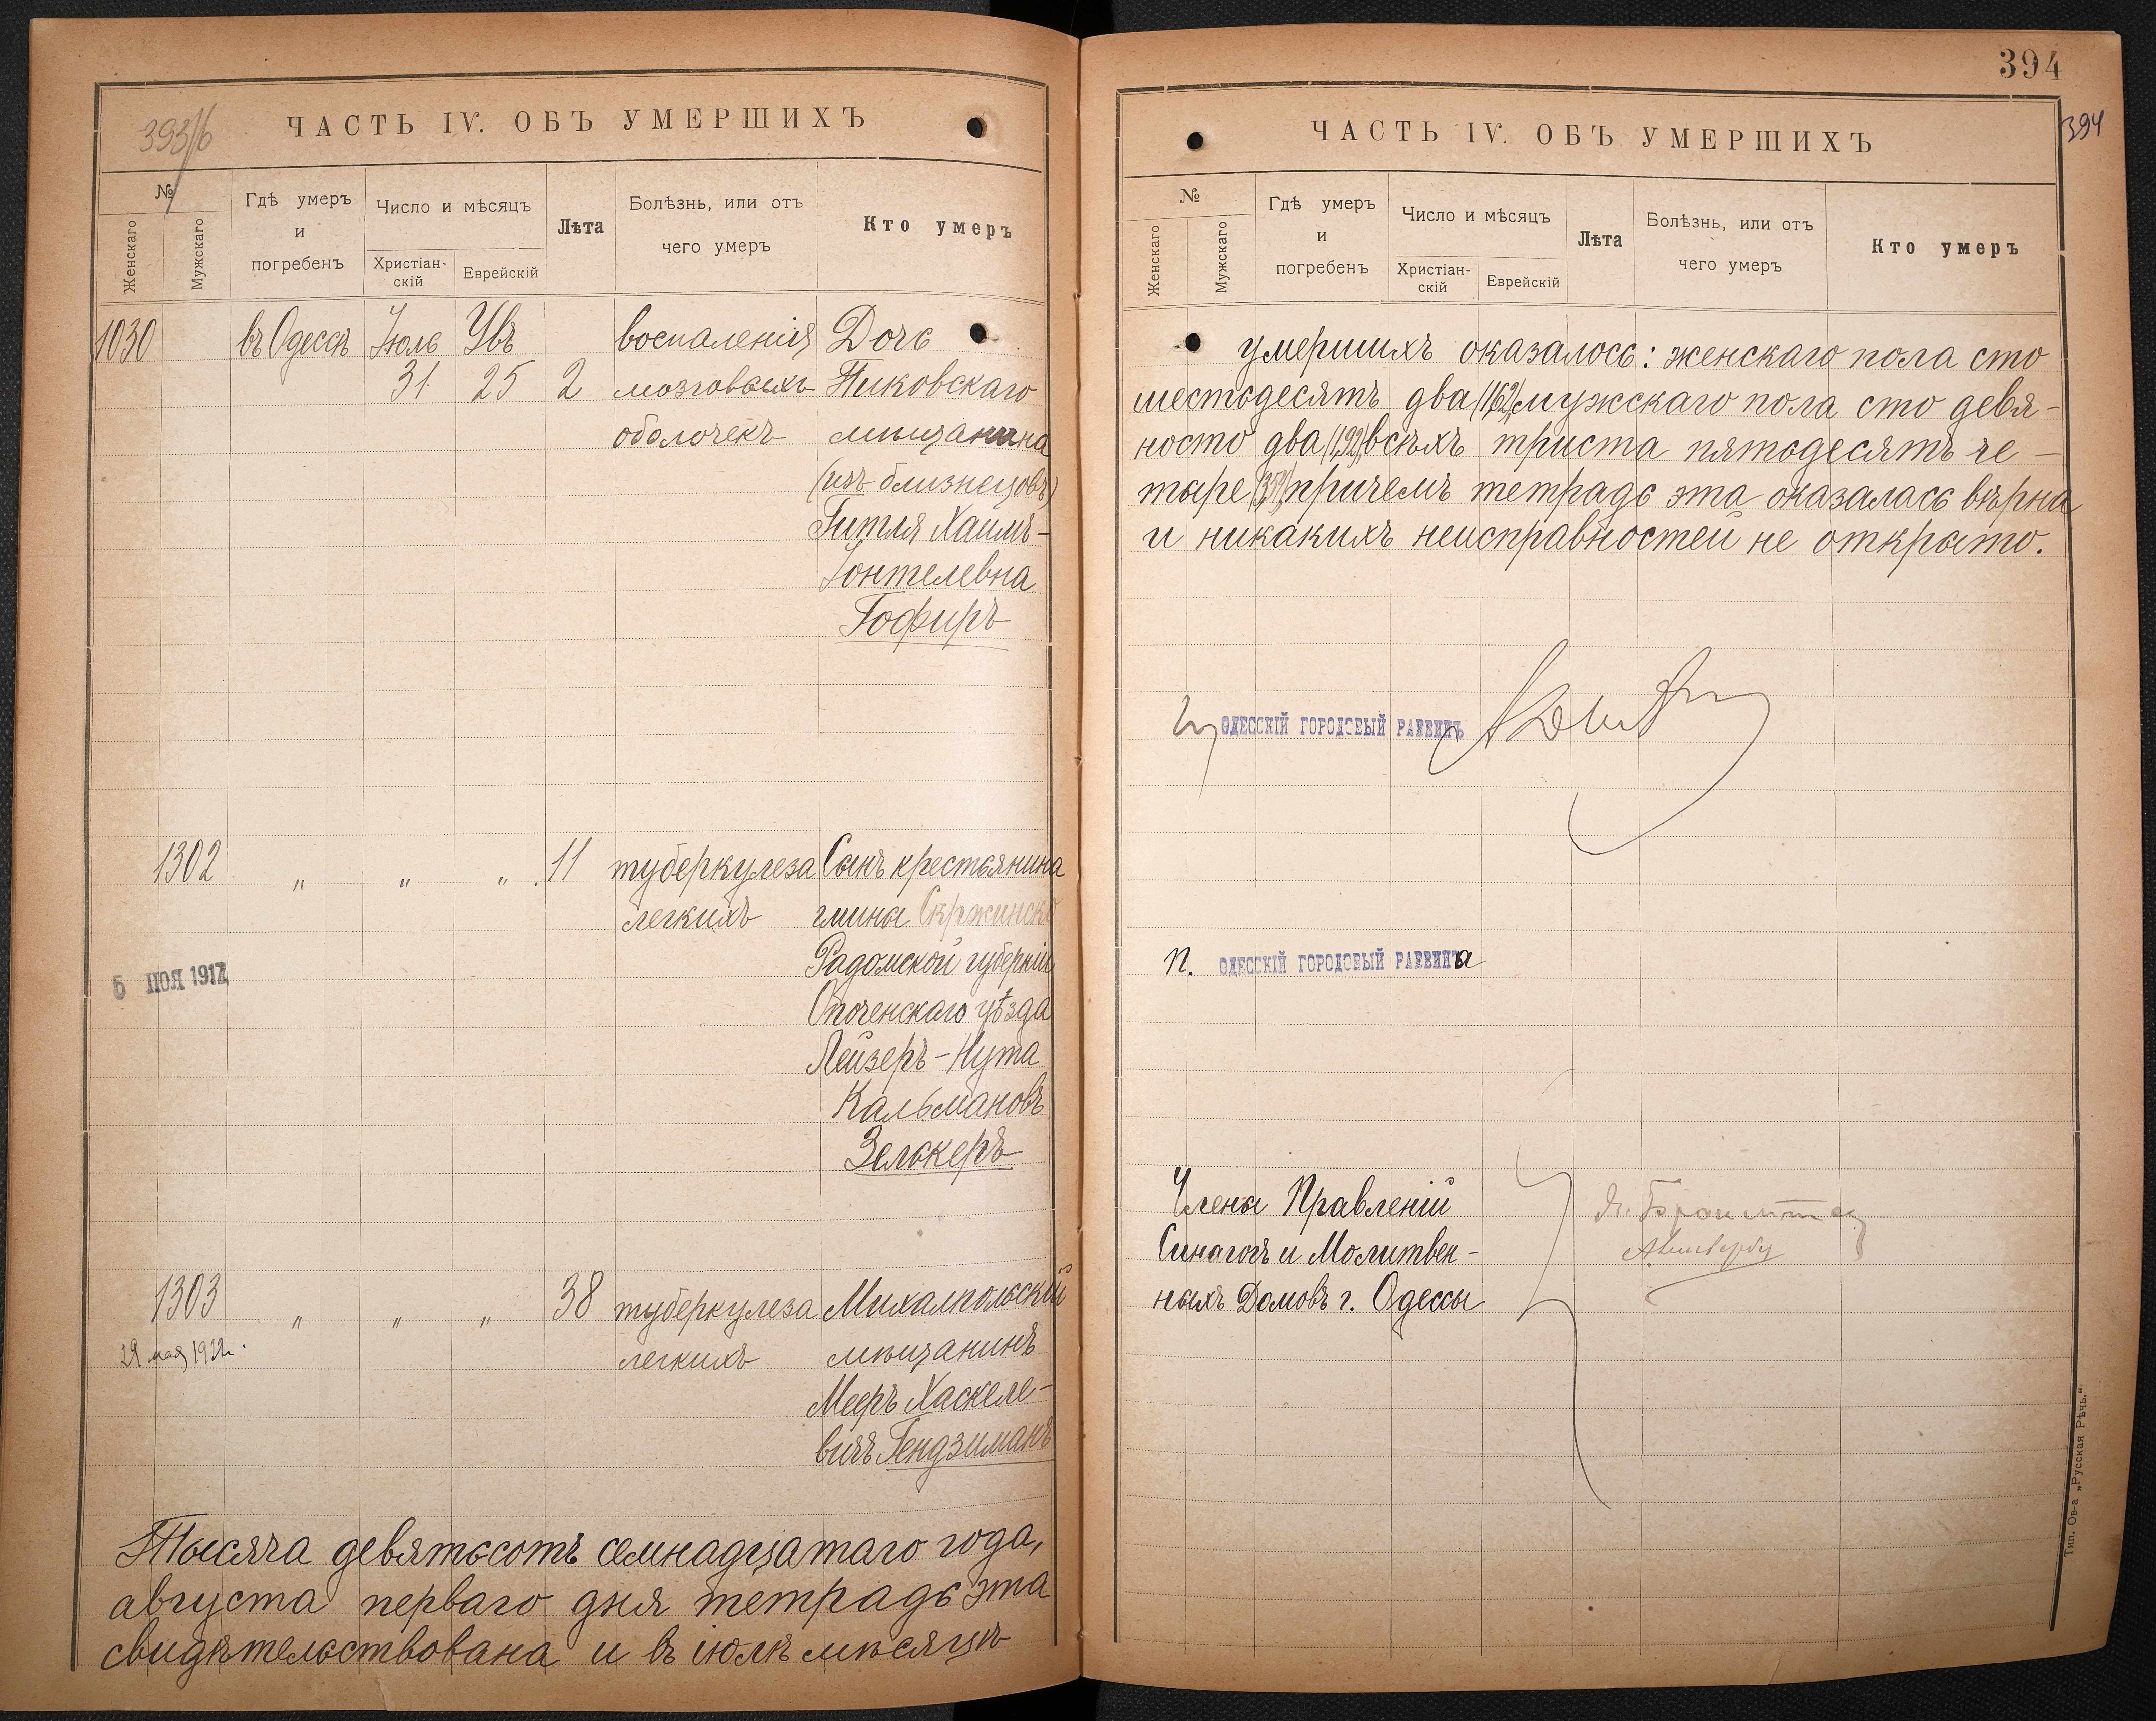 393/б
ЧАСТЬ IV. ОБЪ УМЕРШИХЪ
№
Женскаго
Мужскаго
Гдѣ умеръ
и
погребенъ
Число и мѣсяцъ
Христіан-
скій
Еврейскій
Лѣта
Болѣзнь, или отъ
чего умеръ
Кто умеръ
1030 въ Одессѣ Іюль Увъ воспаленія Дочь
31 25 2 мозговыхъ Пиковскаго
оболочекъ мѣщанина
(изъ близнецовъ)
Гитля Хаимъ-
Іонтелевна
Гофиръ
1302 " " " 11 туберкулеза Сынъ крестьянина
легкихъ гмины Скржинско
Радомской губерніи
5 НОЯ 1917
Опоченскаго уѣзда
Лейзеръ-Нута
Кальмановъ
Зелькеръ
1303 " " " 38 туберкулеза Михалпольскій
29 мая 1922г. легкихъ мѣщанинъ
Мееръ Хаскеле-
вичъ Гендзиманъ
Тысяча девятьсотъ семнадцатаго года,
августа перваго дня тетрадь эта
свидѣтельствована и въ іюлѣ мѣсяцѣ
394
394
ЧАСТЬ IV. ОБЪ УМЕРШИХЪ
№
Женскаго
Мужскаго
Гдѣ умеръ
и
погребенъ
Число и мѣсяцъ
Христіан-
скій
Еврейскій
Лѣта
Болѣзнь, или отъ
чего умеръ
Кто умеръ
умершихъ оказалось: женскаго пола сто
шестьдесятъ два (162) мужскаго пола сто девя-
носто два (192) всѣхъ триста пятьдесятъ че-
тыре (354) причемъ тетрадь эта оказалась вѣрна
и никакихъ неисправностей не открыто.
ОДЕССКІЙ ГОРОДОВЫЙ РАВВИНЪ
п. ОДЕССКІЙ ГОРОДОВЫЙ РАВВИНа
Члены Правленій
Синагогъ и Молитвен-
ныхъ Домовъ г. Одессы
Тип. Ов-а „Русская Рѣчь."